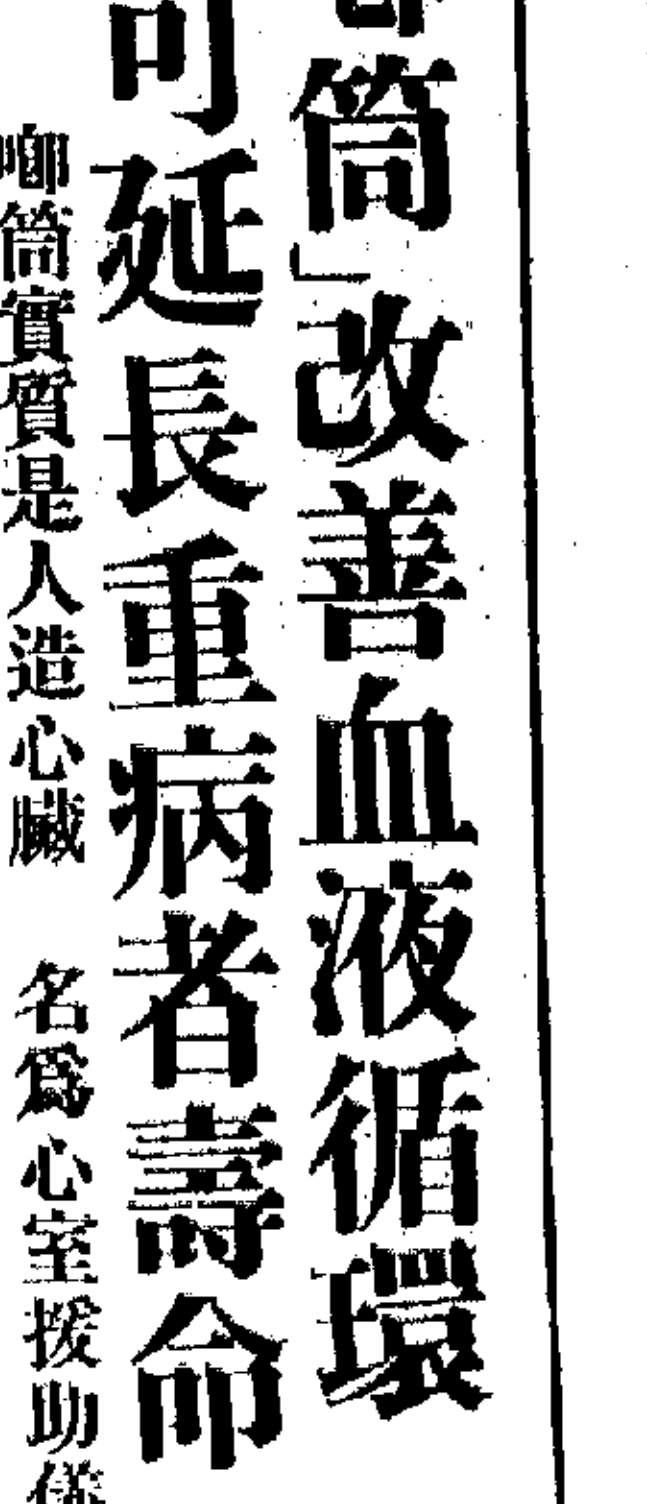 筒」改善血液循環
可延長重病者壽命
啣筒實質是人造心臟 名爲心室援助儀